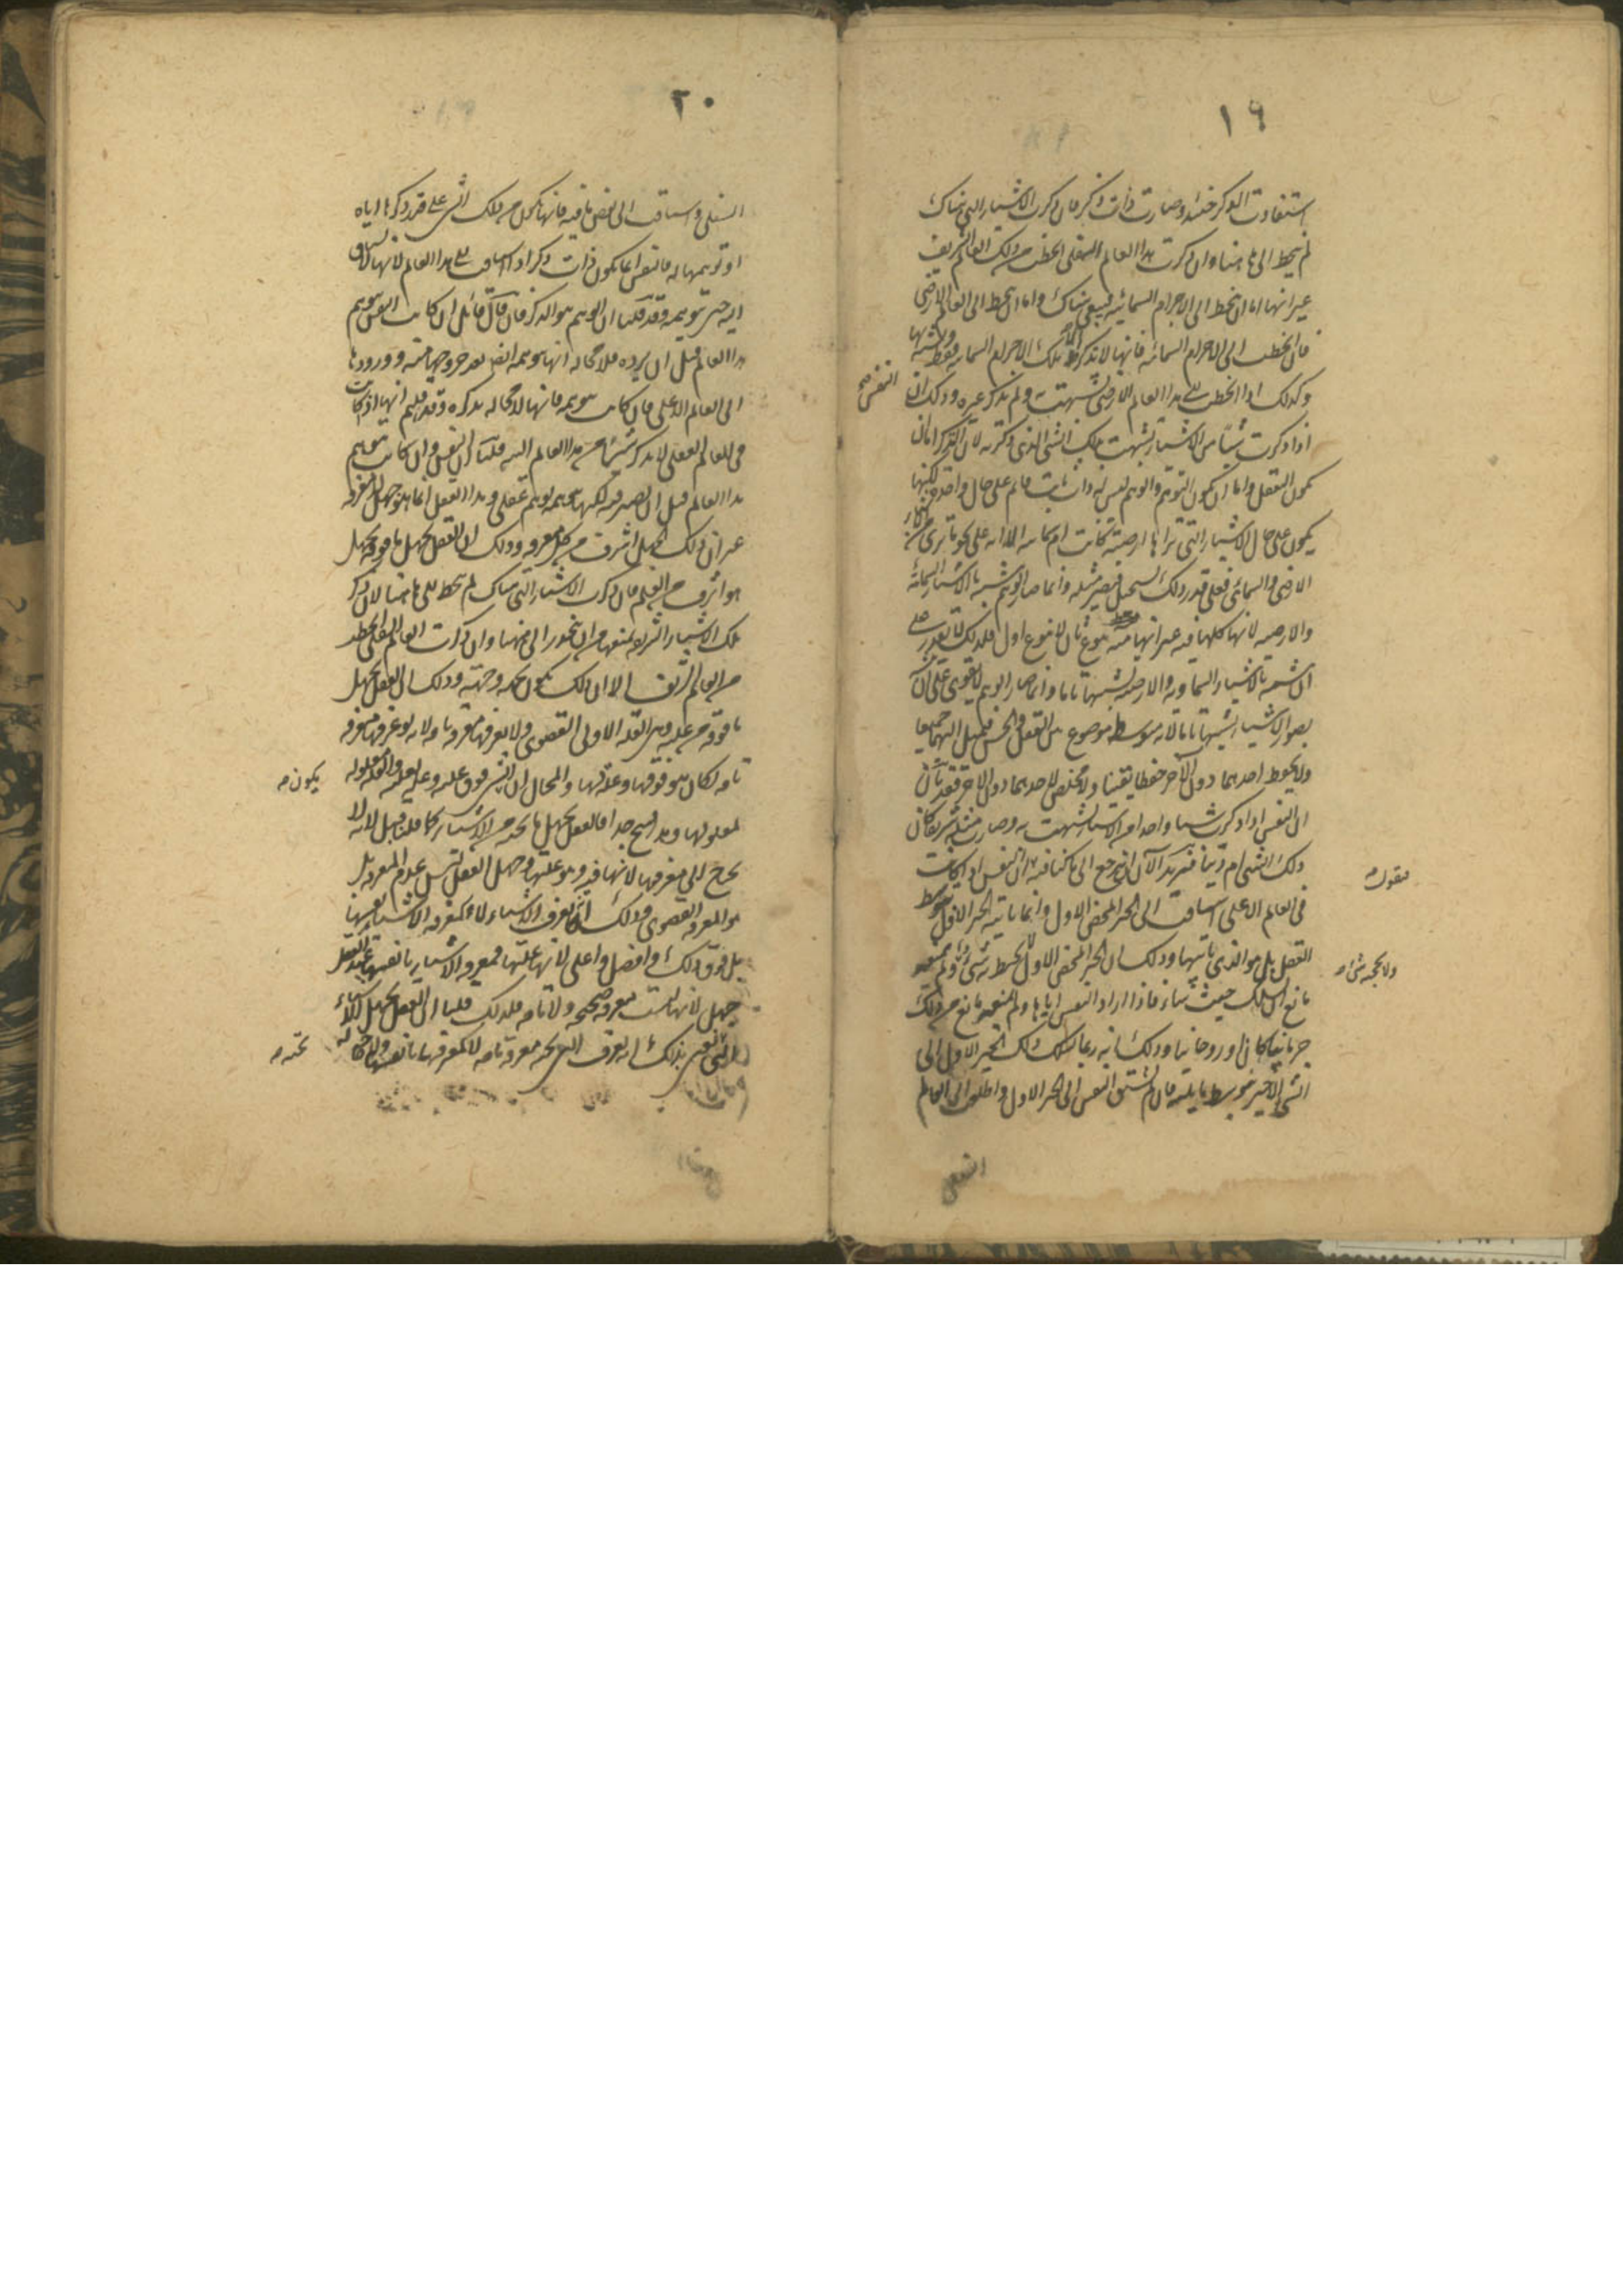 ١٩
استفادت الذكر حينئذ وصارت ذات ذكر فان ذكرت الاشياء التي هناك
لم تنحط الى ها هنا وان ذكرت هذا العالم السفلي انحطت من ذلك العالم الشريف
غير انها اما ان تنحط الى الاجرام السمائية فتبقى هناك واما ان تنحط الى العالم الارضي
فان انحطت الى الاجرام السمائية فانها لا تذكر الا تلك الاجرام السمائية فقط وتشبهت بها
وكذلك اذا انحطت الى هذا العالم الارضي تشبهت به ولم تذكر غيره وذلك ان
النفس صح
اذا ذكرت شيئا من الاشياء تشبهت بذلك الشيء الذي ذكرته لان التذكر اما ان
يكون التعقل واما ان يكون التوهم والوهم ليس له ذات ثابت قائم على حال واحدة لكنها
يكون على حال الاشياء التي تراها ارضية كانت ام سمائية الا انه على نحو ما ترى من
الارضي والسمائي فعلى قدر ذلك تستحيل فتصير مثله وانما صار الوهم يشبه بالاشياء السمائية
والارضية لانها كلها فيه غير انها فيه بنوع ثان لا بنوع اول فلذلك لا تقدر على
ان تشبه بالاشياء السماوية والارضية تشبها تاما وانما صار الوهم لا يقوى على ان
بصور الاشياء تشبها تاما لانه متوسط موضوع بين العقل والحس فيميل اليهما جميعا
ولا يحفظ احدهما دون الآخر حفظا يقينا ولا يخلص لاحدهما دون الآخر فقد بان
ان النفس اذا ذكرت شيئا واحدا من الاشياء تشبهت به وصارت مثله شريفا كان
ذلك الشيء ام دنيا فنريد الآن ان نرجع الى ما كنا فيه ان النفس اذا كانت
فنقول
في العالم الاعلى اشتاقت الى الخير المحض الاول وانما ياتيه الخير الاول بتوسط
العقل بل هو الذي ياتيها وذلك ان الخير المحض الاول لا يحيط به شيء ولم يمنعه
ولا يحجبه شيء صح
مانع ان يسلك حيث شاء فاذا اراد النفس اتاها ولم يمنعه مانع من ذلك
جرمانيا كان او روحانيا وذلك انه ربما سلك ذلك الخير الاول الى
الشيء الاخير بتوسط ما يليه فان لم تشتق النفس الى الخير الاول واطلعت الى العالم
السفلي
٢٠
السفلي واشتاقت الى بعض ما فيه فانها تكون من ذلك الشيء على قدر ذكرها اياه
او توهمها له فالنفس انما تكون ذات ذكر اذا اشتاقت الى هذا العالم لانها لا تشتاق
اليه حتى تتوهمه وقد قلنا ان الوهم هو الذكر فان قال قائل ان كانت النفس تتوهم
هذا العالم قبل ان ترده فلا محالة انها تتوهمه ايضا بعد خروجها منه وورودها
الى العالم الاعلى فان كانت تتوهمه فانها لا محالة تذكره وقد قلتم انها اذا كانت
في العالم العقلي لا تذكر شيئا من هذا العالم البتة قلنا ان النفس وان كانت تتوهم
هذا العالم قبل ان تصير فيه لكنها تتوهمه بوهم عقلي وهذا الفعل انما هو جهل لا معرفة
غير ان ذلك الجهل اشرف من كل معرفة وذلك ان العقل يجهل ما فوقه بجهل
هو اشرف من العلم فان ذكرت الاشياء التي هناك لم تنحط الى ها هنا لان ذكر
تلك الاشياء الشريفة يمنعها من ان تنحدر الى ههنا وان ذكرت العالم السفلي انحطت
من العالم الشريف الا ان ذلك يكون بحده وجهته وذلك ان العقل يجهل
ما فوقه من علته وهي العلة الاولى القصوى ولا يعرفها معرفة تامة لانه لو عرفها معرفة
تامة لكان هو فوقها وعلة لها والمحال ان الشيء فوق علته وعلة لعلته والعلة معلولة
يكون صح
لمعلولها وهذا قبيح جدا فالعقل يجهل ما تحته من الاشياء كما قلنا قبل لانه لا
يحتاج الى معرفتها لانها فيه وهو علتها وجهل العقل ليس عدم المعرفة بل
هو المعرفة القصوى وذلك انه يعرف الاشياء لا كمعرفة الاشياء بنفسها
بل فوق ذلك وافضل واعلى لانها علتها فمعرفة الاشياء بانفسها عند العقل
جهل لانها ليست بمعرفة صحيحة ولا تامة فلذلك قلنا ان العقل يجهل الاشياء
التي نعني بذلك انه يعرف التي تحته معرفة تامة لا كمعرفتها بانفسها ولا حاجة له
تحته صح